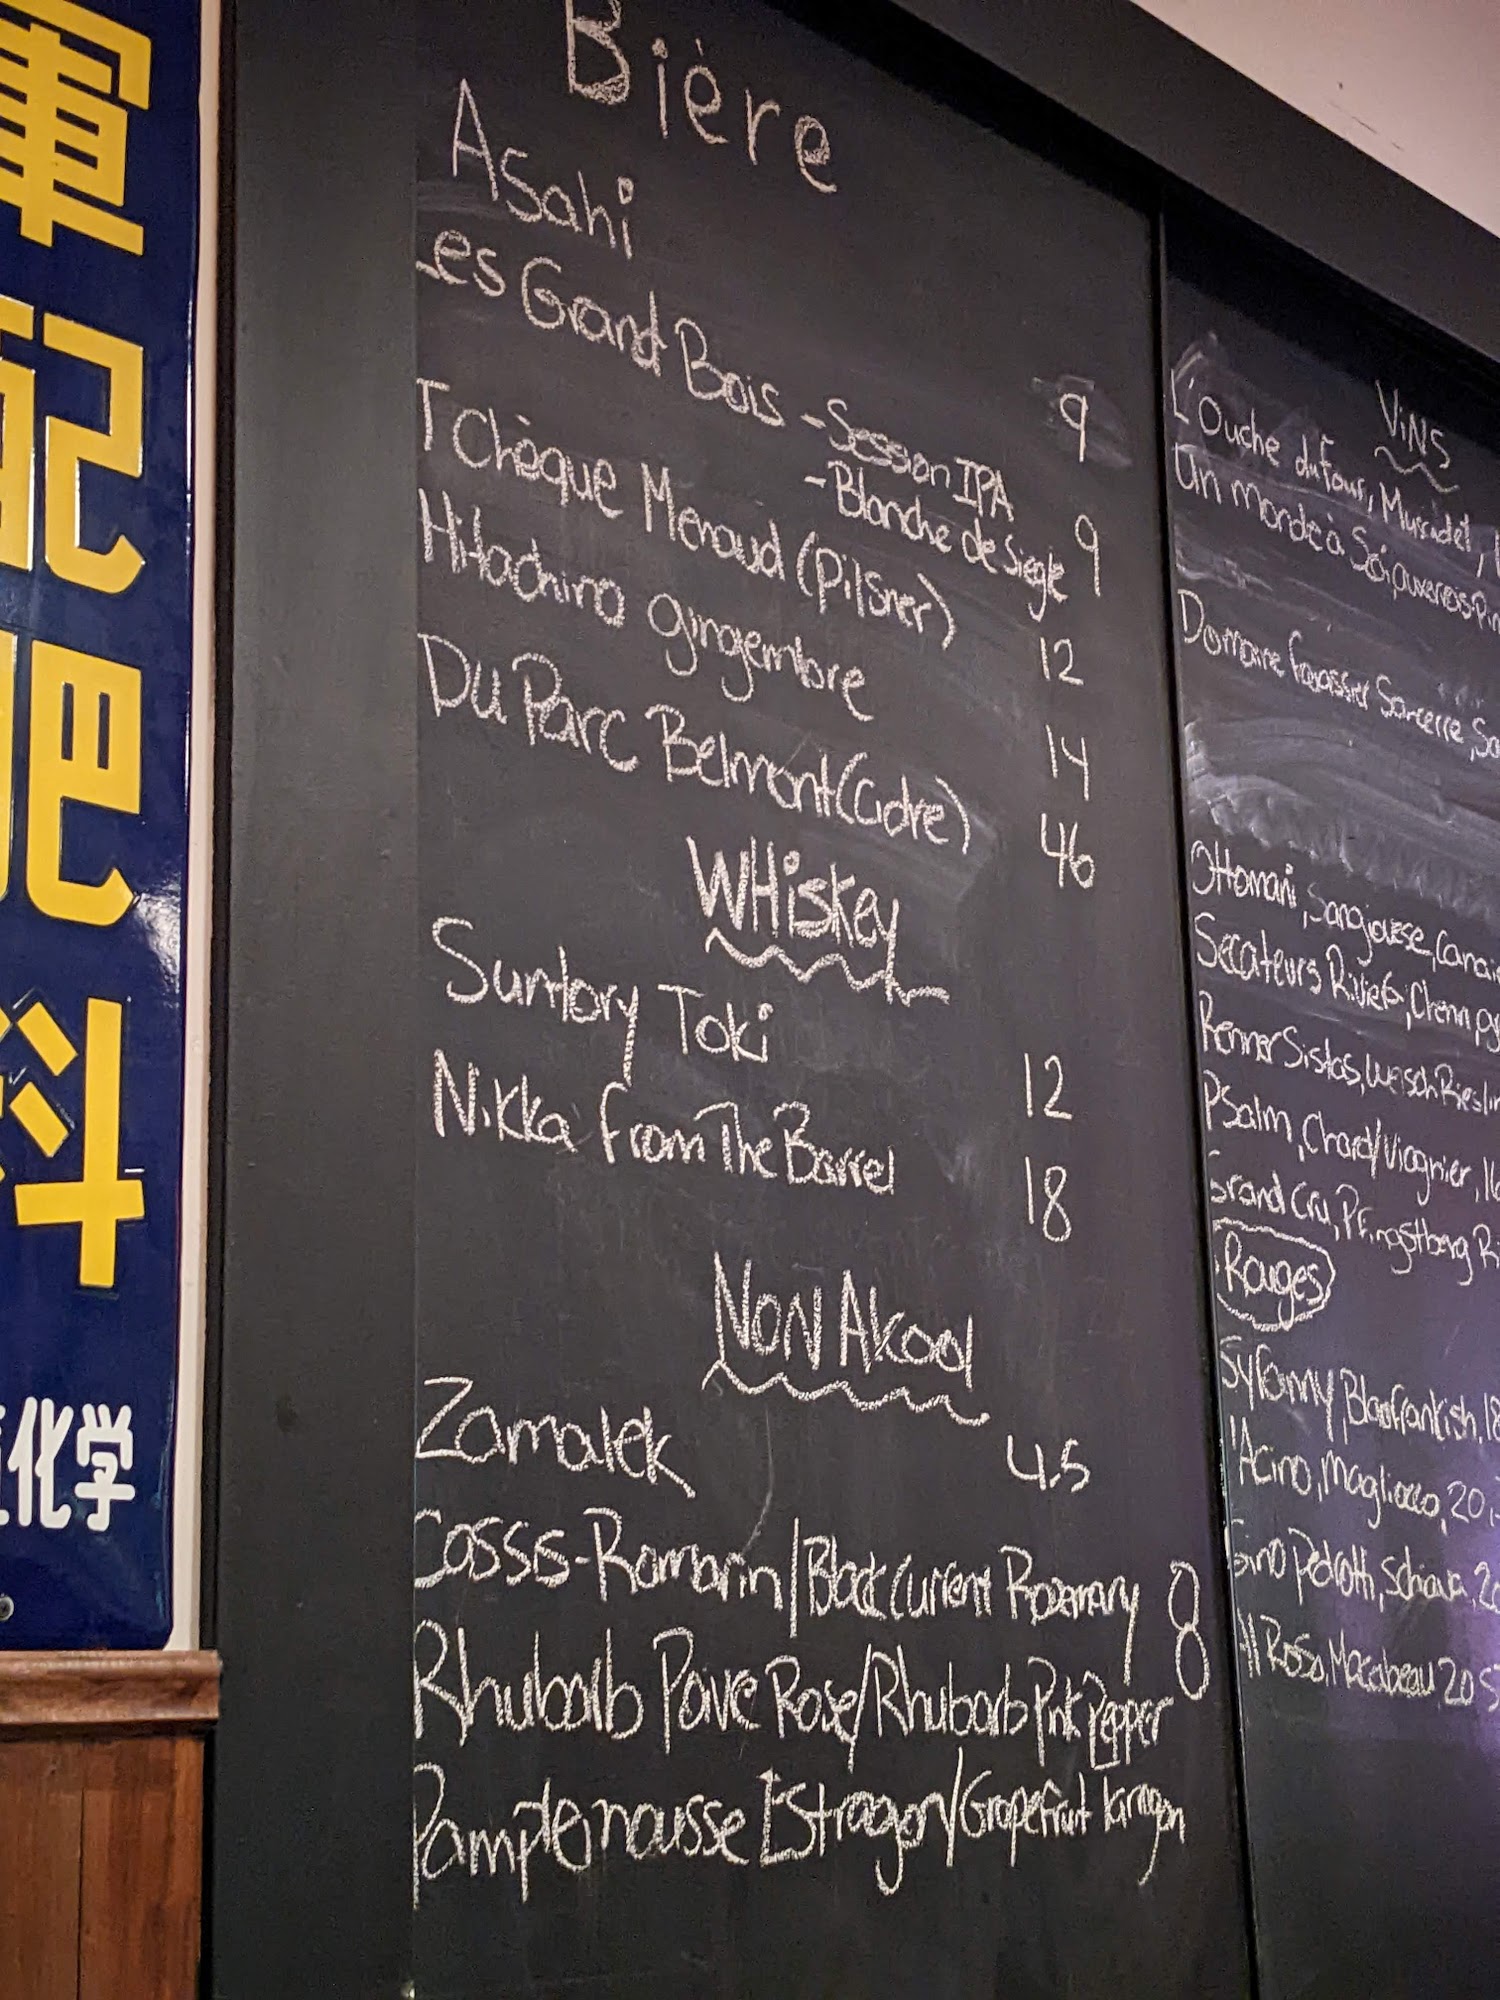 軍
配
肥
料
化学
Bière
Asahi 9
Les Grand Bois -Session IPA
-Blanche de Siegle 9
Tchèque Menaud (Pilsner) 12
Hitachino gingembre 14
Du Parc Belmont (Cidre) 46
WHiskey
Suntory Toki 12
Nikka From The Barrel 18
NON Alcool
Zamalek 4.5
Cassis-Romarin/Black Current Rosemary 8
Rhubarb Poive Rose/Rhubarb Pink Pepper
Pamplemousse Estragon/Grapefruit Tarragon
ViNS
L'Ouche du Four, Muscadet,
Un mord
Domaine Fouassier Sancerre, Sa
Ottomani, Sangiovese, Canai
Secateurs Rivieks, Chenn
Renner Sistas, Welsch Rieslin
Psalm, Chard/Viognier, 16
Grand Cru, Pfingstberg Ri
Rouges
Blaufrankish, 18
Acino, Magliocco, 20,
Gino Pedrotti, Schiava, 20
Il Rosso, Macabeau 20